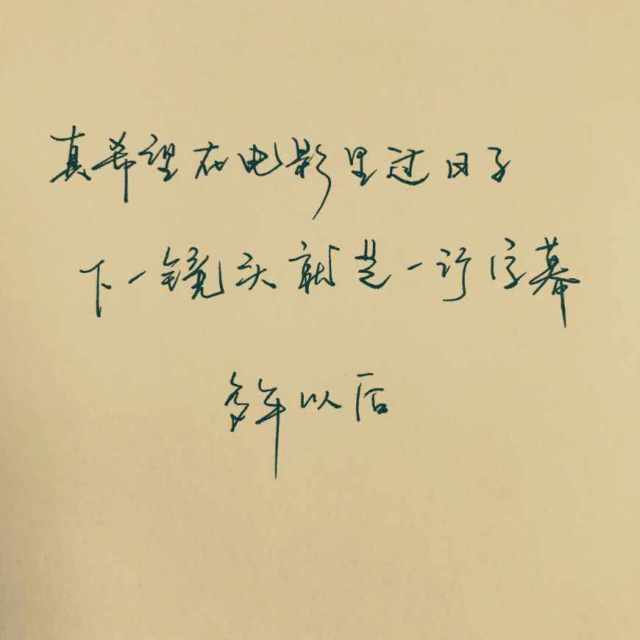 真希望在电影里过日子
下一镜头就是一行字幕
多年以后